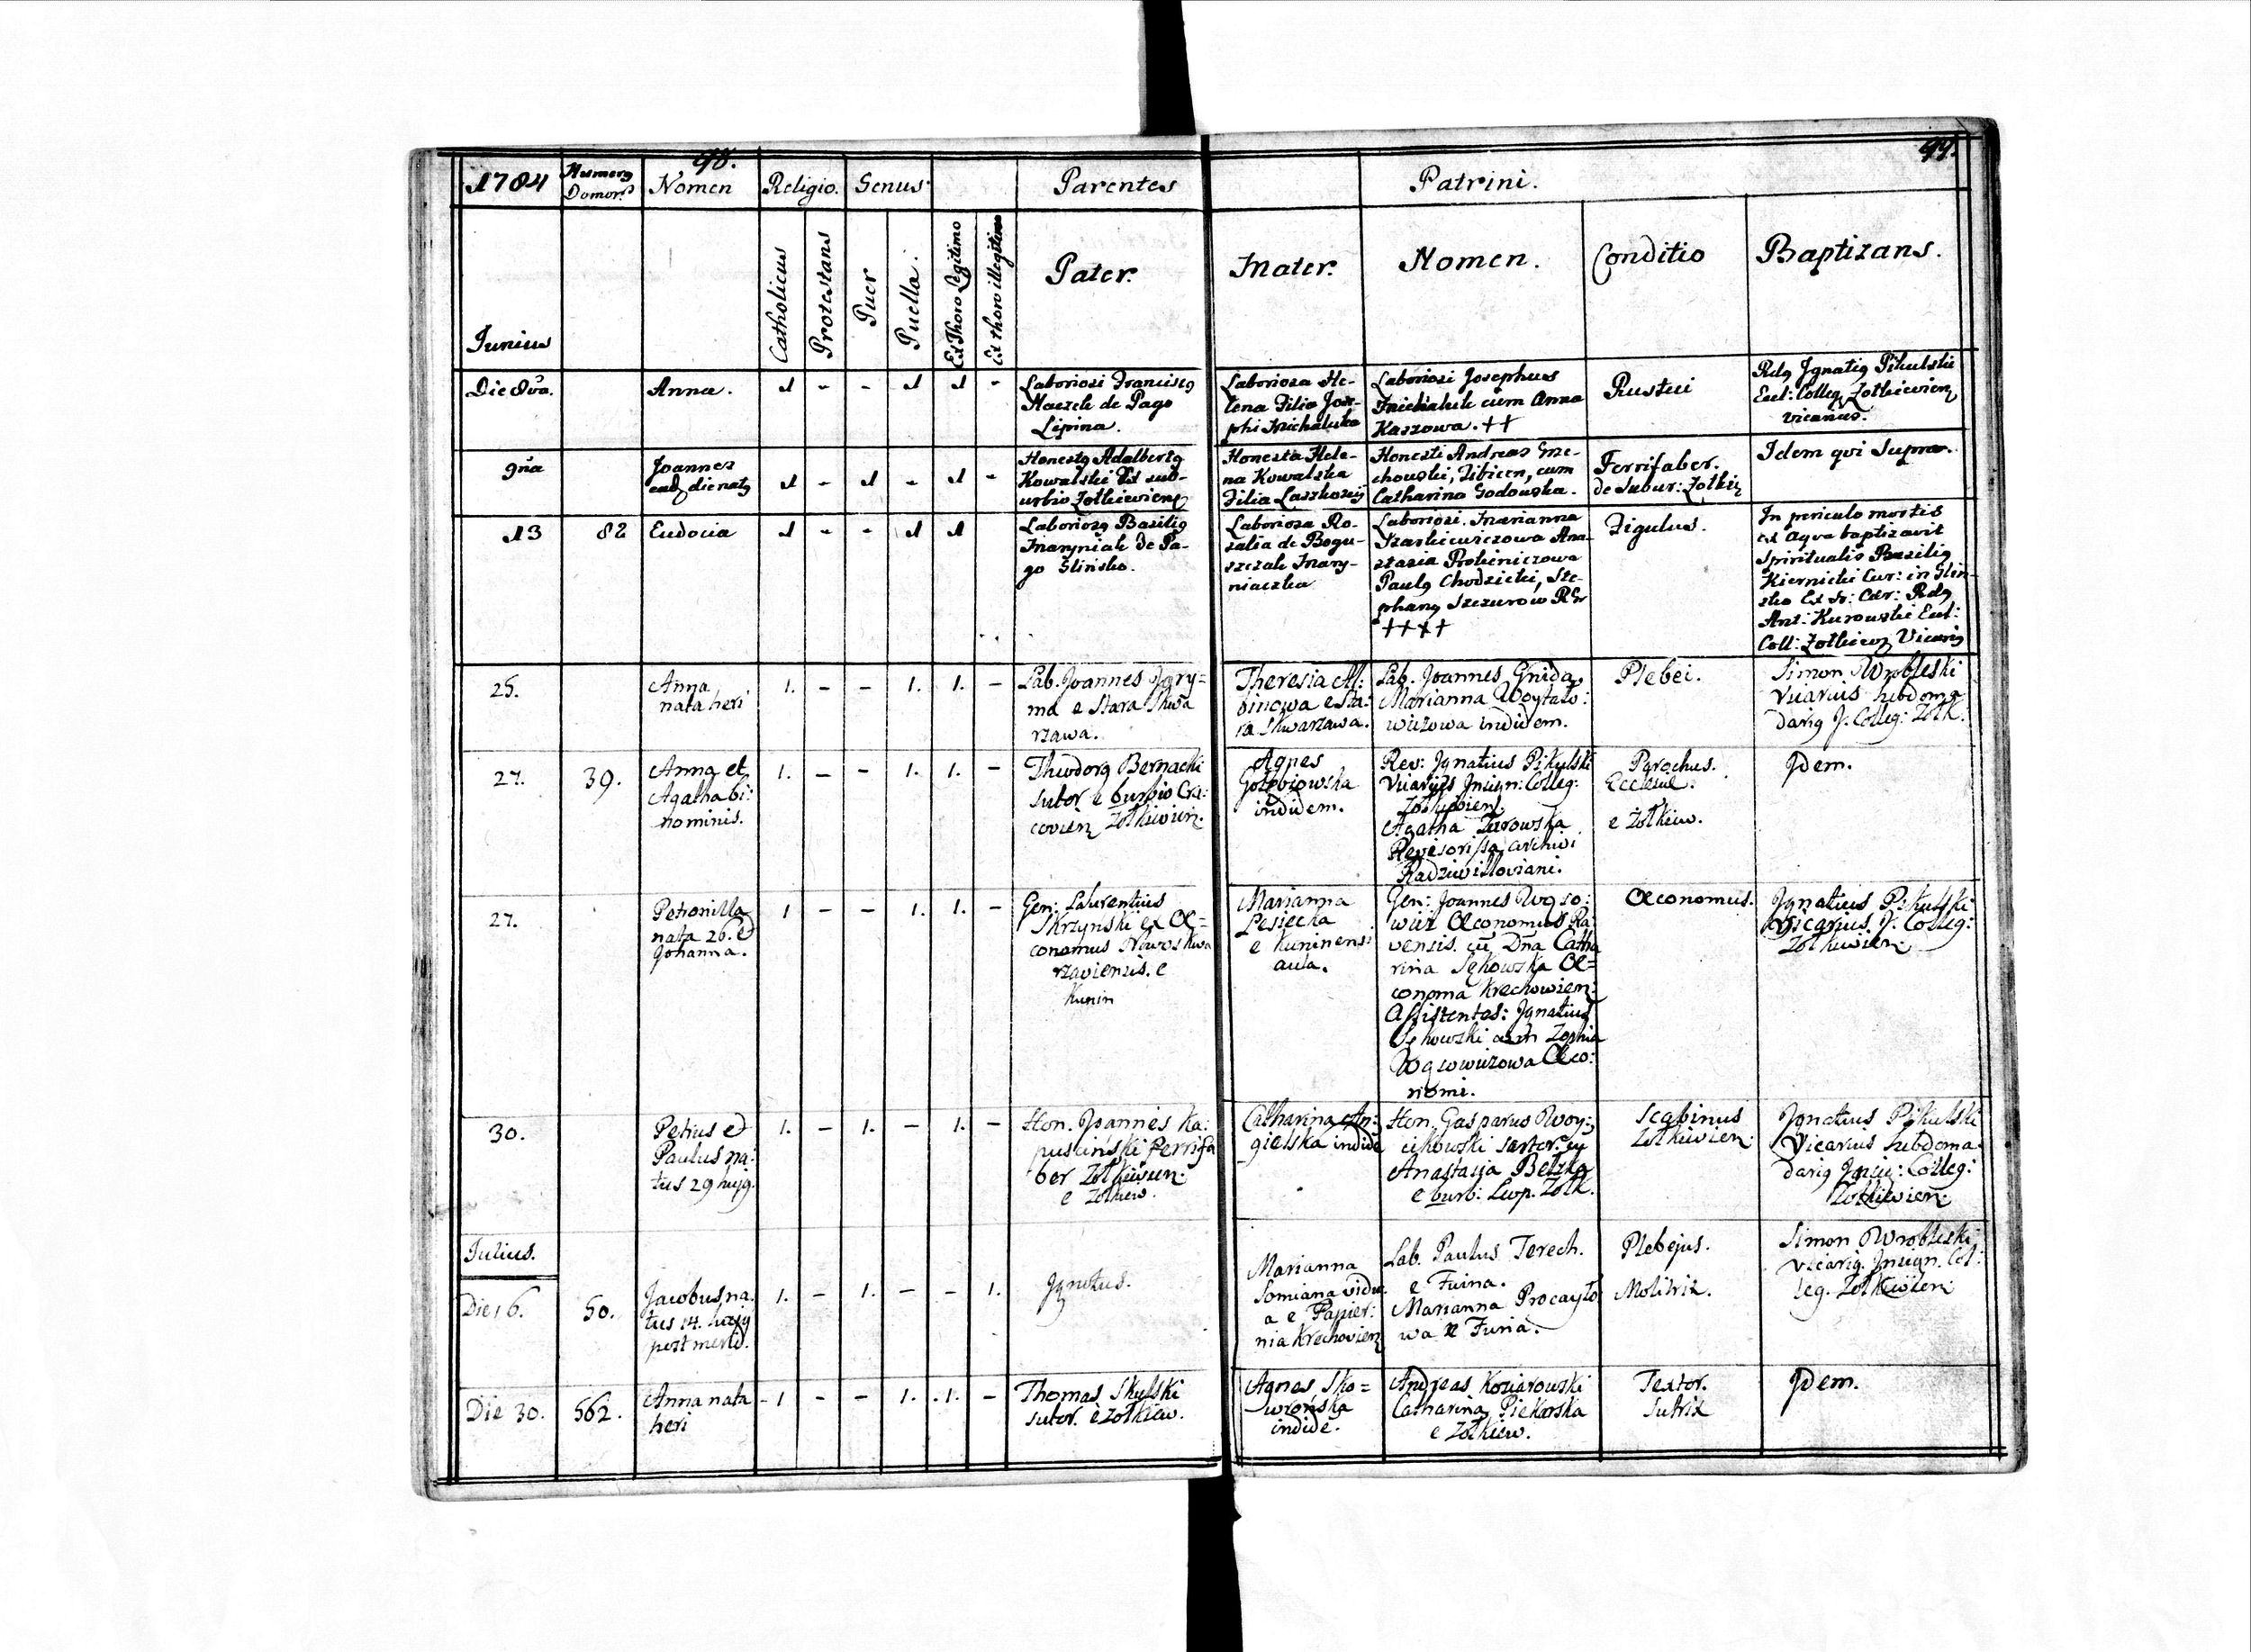 98.
99.
1784 Numerq Domorq Nomen Religio. Genus Parentes Patrini.
Junius Catholicus Protestans Puer Puella. Ex Thoro Legitimo Ex thoro illegitimo Pater. Mater. Nomen. Conditio Baptizans.
Die 8va. Anna. 1 - - 1 1 -
Laboriosi Franciscq
de Pago
Lipina.
Laboriosa He-
lena Filia Jose-
phi Michaluka
Laboriosi Josephus
Michaluk cum Anna
Kaszowa. ++
Rustici
Rdq Ignatiq Pikulski
Eccl: Colleg Zolkievien
vicarius.
9na Joannes
ead die natq 1 - 1 - 1 -
Honestq Adalbertq
Kowalski Ex sub-
urbio Zolkievien
Honesta Hele-
na Kowalska
Filia
Honesti Andreas Gze-
chowski, Tibicen, cum
Catharina Godowska.
Ferrifaber.
de Subur: Zolkie
Idem qvi Supra.
13 82 Eudocia 1 - - 1 1
Laboriosq Basiliq
Maryniak de Pa-
go Glinsko.
Laboriosa Ro-
zalia de Bogu-
szczak Mary-
niaczka
Laboriosi. Marianna
Szaskiewiczowa Ana-
stasia Prokieniczowa
Paulq Chodzicki, Ste-
phanq Szczurow RGr
++++
Figulus.
In periculo mortis
ex aqva baptizavit
Spiritualis Basiliq
Kiernicki Cur: in Glin-
sko Ex Sr: Cer: Rdq
Ant: Kurowski Eccl:
Coll: Zolkiev Vicariq
25. Anna
nata heri 1. - - 1. 1. -
Lab. Joannes Jary=
ma e Stara Skwa
rzawa.
Theresia Al:
binowa e Sta:
ra Skwarzawa.
Lab. Joannes Gnida,
Marianna Woytało:
wiczowa indidem.
Plebei.
Simon Wrobleski
Vicarius hebdoma
dariq J. Colleg: Zołk.
27. 39. Anna et
Agatha bi:
nominis. 1. - - 1. 1. -
Theodorq Bernacki
sutor e burbio Cra:
covien Zołkiewien.
Agnes
Gołębiowska
indidem.
Rev: Ignatius Pikulski
Vicarius Insign: Colleg:
Zołkiewien
Agatha Zurowska
Revisorissa archivi
Radziwiłłoviani.
Parochus.
Ecclesiae.
e Zołkiew.
Idem.
27. Petronilla
nata 26. et
Johanna. 1 - - 1. 1. -
Gen: Laurentius
Skrzynski ex Oe=
conomus Nowoskwa
rzaviensis. e
Kunin
Marianna
Lesiecka
e Kuninensi
aula.
Gen: Joannes Wąso:
wicz Oeconomus Ra:
vensis. cū Dna Catha
rina Sękowska Oe=
conoma Krechowien:
Assistentes: Ignatius
Sękowski cum Zophia
Wąsowiczowa Oeco:
nomi.
Oeconomus.
Ignatius Pikulski
Vicarius. J. Colleg:
Zołkiewien:
30. Petrus et
Paulus na:
tus 29 hujq. 1. - 1. - 1. -
Hon. Joannes Ka:
puscinski Ferrifa
ber Zołkiewien:
e Zołkiew.
Catharina An:
gielska indide
Hon. Gasparus Woy:
cikowski sartor. cū
Anastasia Belzka
e burb: Leop. Zołk.
Scabinus
Zołkiewien:
Ignatius Pikulski
Vicarius hebdoma
dariq Insig: Colleg:
Zołkiewien:
Julius.
Die 16. 50. Jacobus na.
tus 14. hujq
post merid. 1. - 1. - - 1.
Ignotus.
Marianna
Somiana vidu
a e Papier:
nia Krechovien
Lab. Paulus Terech.
e Fuina.
Marianna Procayło
wa e Furia.
Plebejus.
Molitrix.
Simon Wrobleski
vicariq. Insign. Col:
leg. Zołkiewien:
Die 30. 562. Anna nata
heri - 1 - - 1. 1. -
Thomas Skulski
sutor. e Zołkiew.
Agnes Sko=
wrońska
indide.
Andreas Koziarowski
Catharina Piekarska
e Zołkiew.
Textor.
Sutrix
Idem.